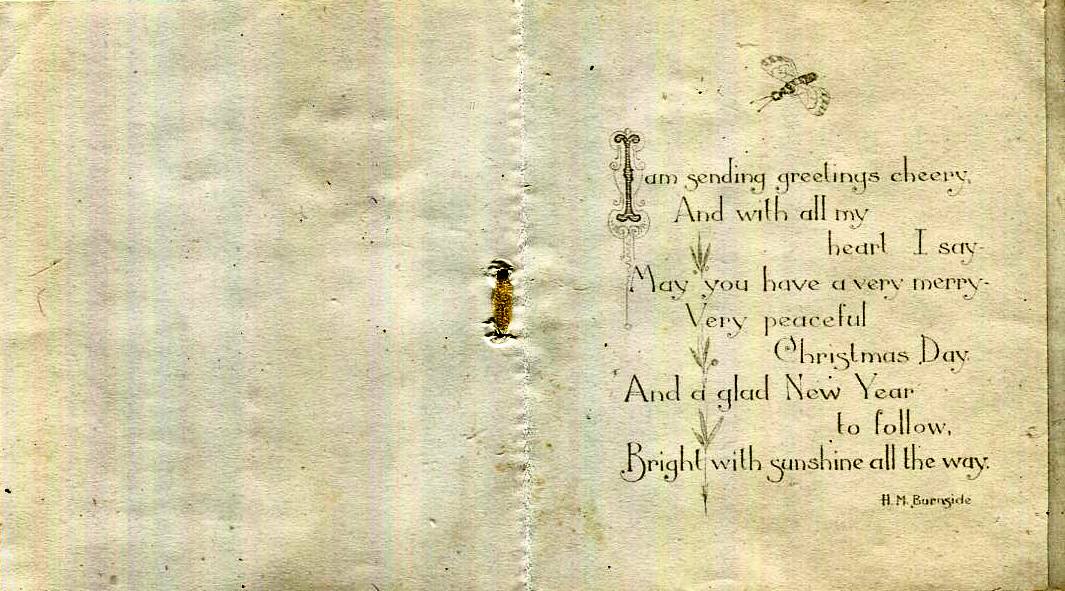 I am sending greetings cheery,
And with all my
heart I say-
May you have a very merry-
Very peaceful
Christmas Day.
And a glad New Year
to follow,
Bright with sunshine all the way.
H. M. Burnside